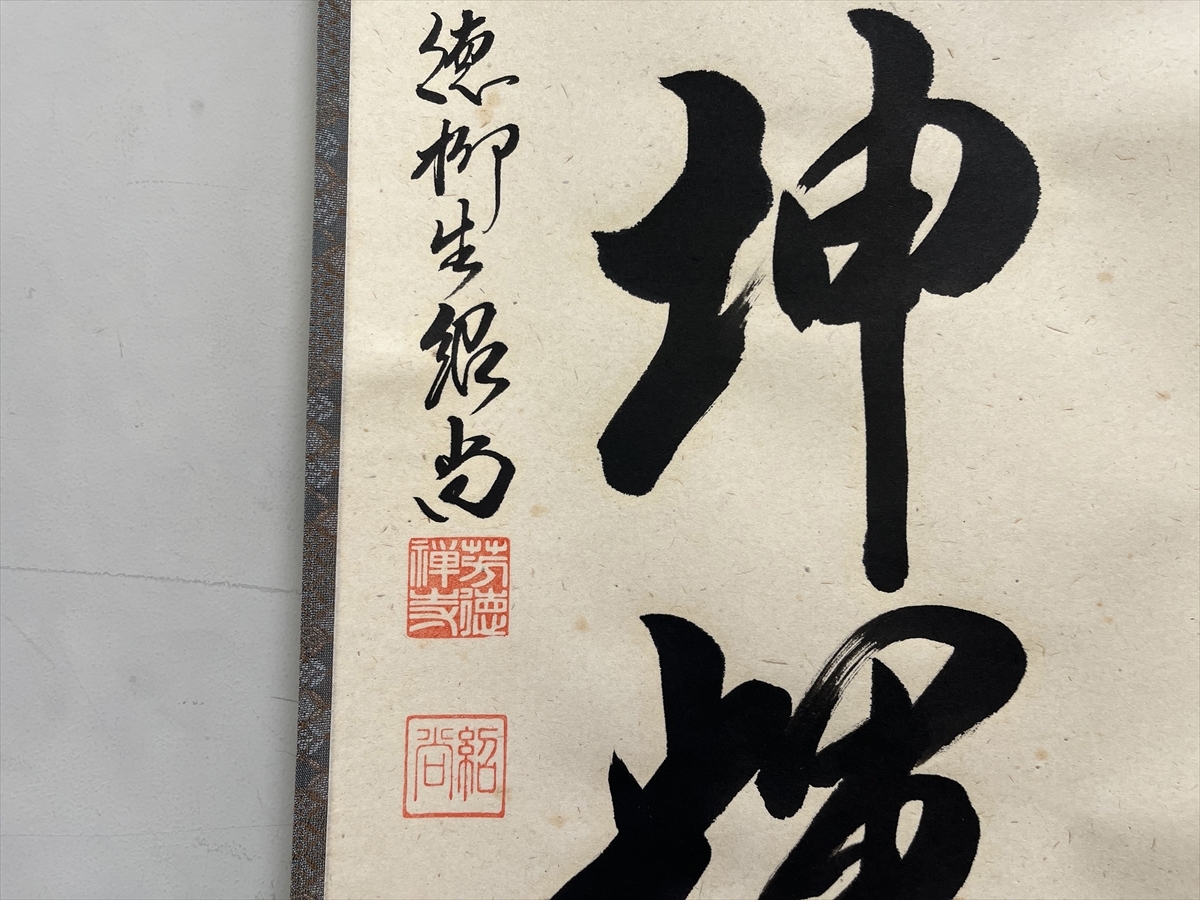 坤輝
徳柳生紹尚
芳徳禅寺
紹尚